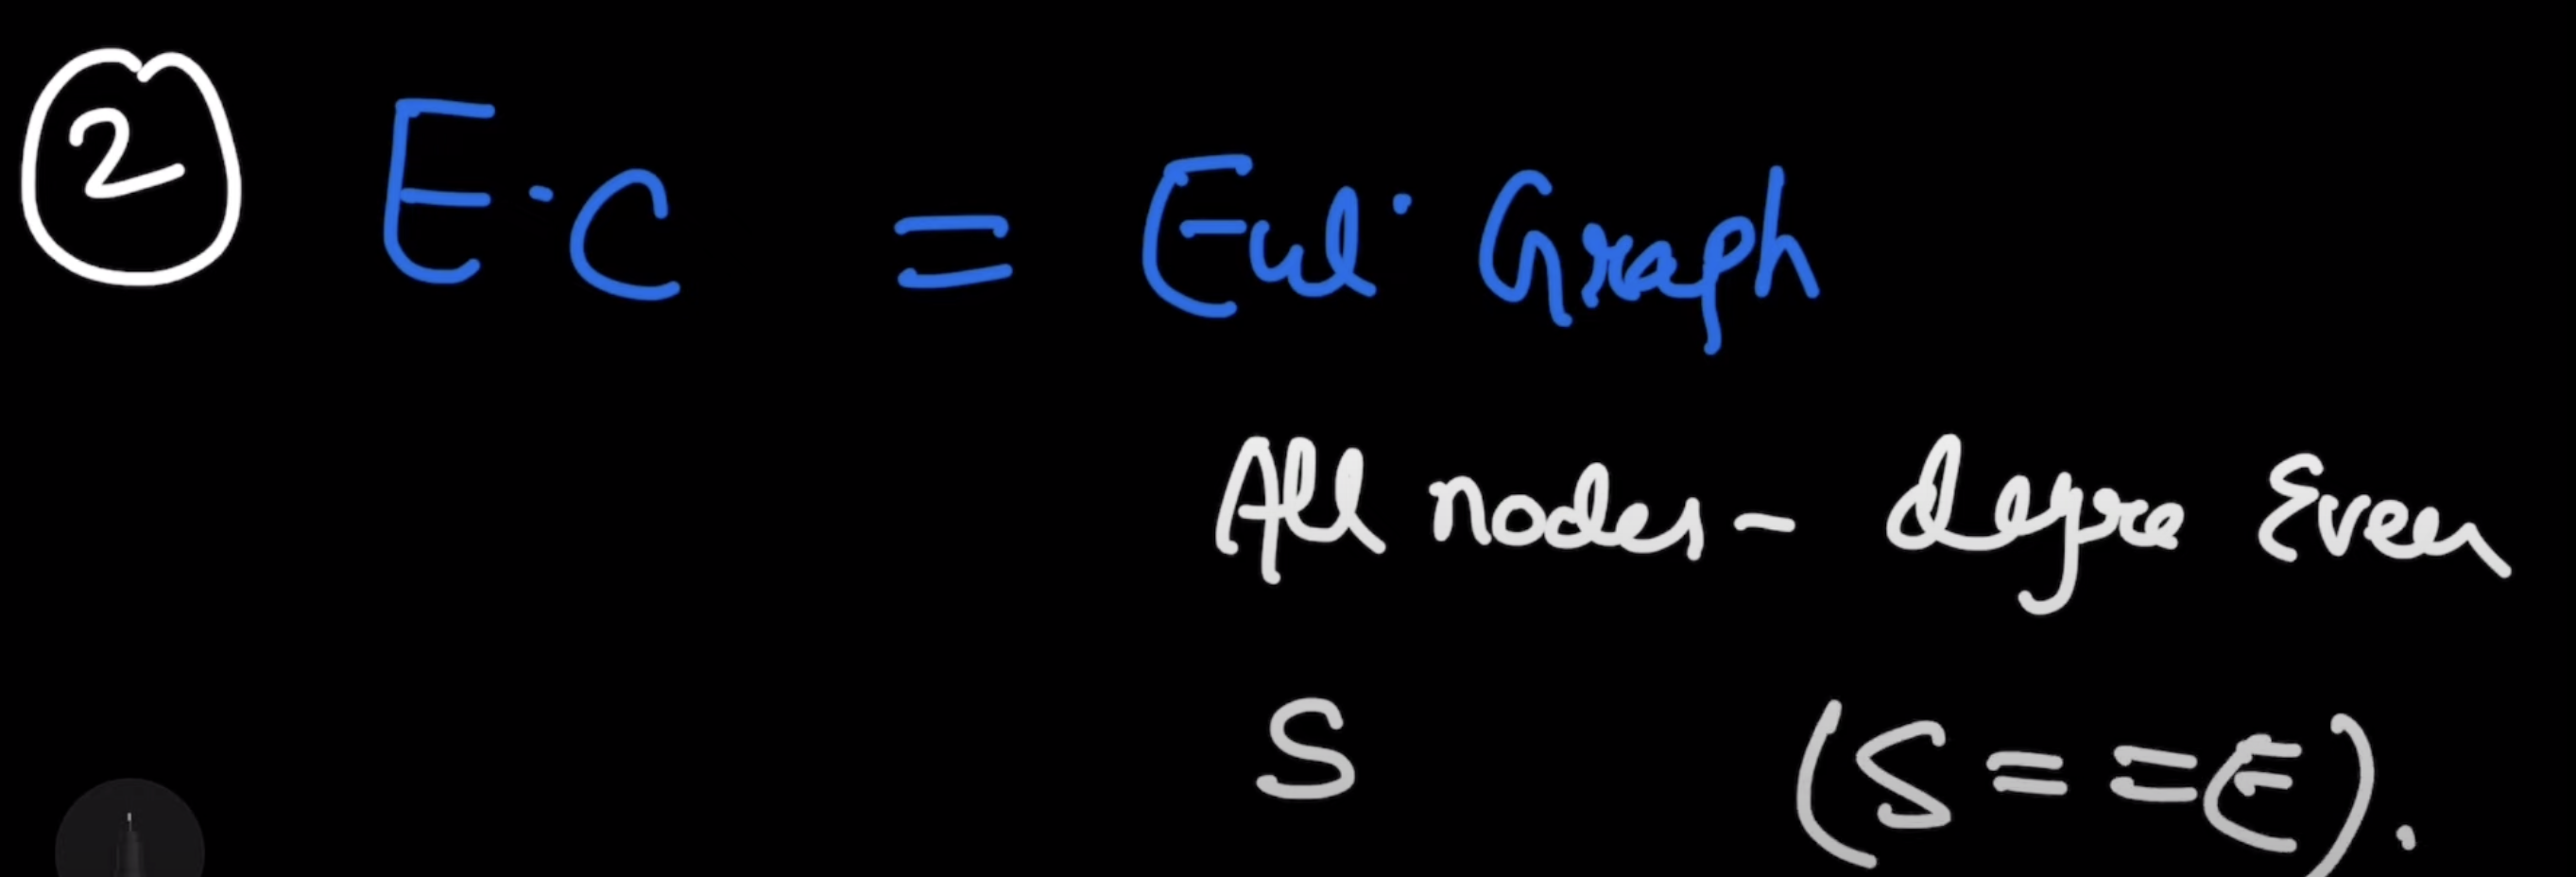 2 E.C = Eul. Graph
All nodes - degree Even
S (S = = E).